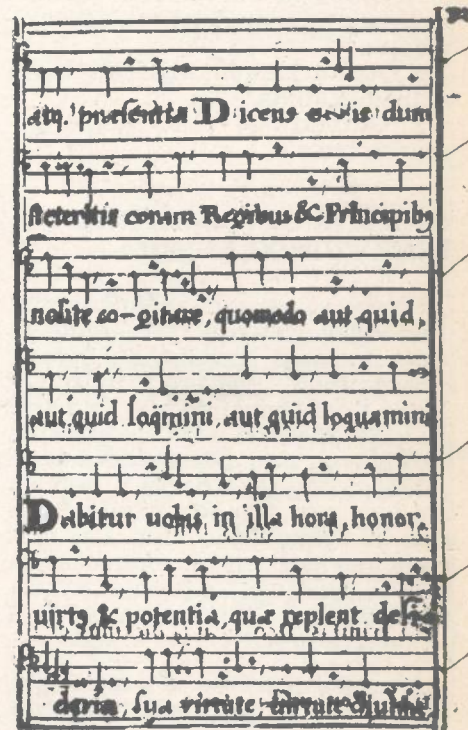 atq. praesentia Dicens dum
steteritis coram Regibus & Principibꝰ
nolite co-gitare, quomodo aut quid,
aut quid loq̃mini, aut quid loquamini
Dabitur uobis in illa hora, honor,
uirtꝰ & potentia, quæ replent
sua virtute, virtute